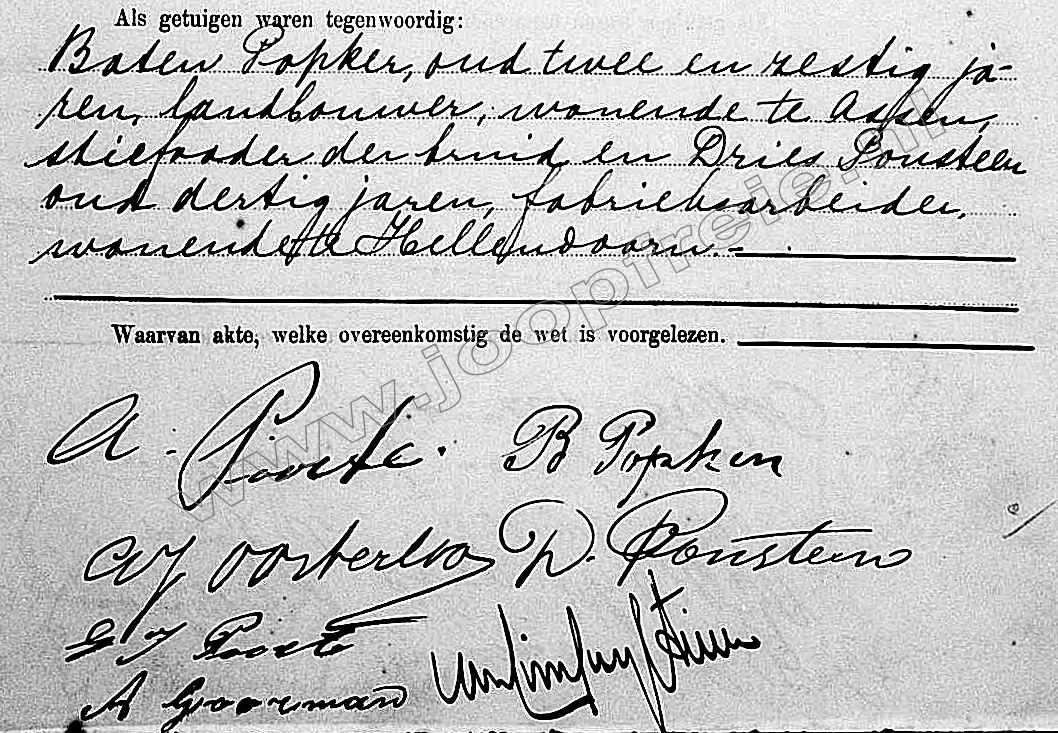 Als getuigen waren tegenwoordig:
Baten Popker, oud twee en zestig ja-
ren, landbouwer, wonende te Assen,
stiefvader der bruid en Dries Ponsteen
oud dertig jaren, fabrieksarbeider,
wonende te Hellendoorn. –
Waarvan akte, welke overeenkomstig de wet is voorgelezen.
A. Pooste. B Popken
Oosterloo D. Ponsteen
Pooste
A Goorman
www.joopfreie.nl